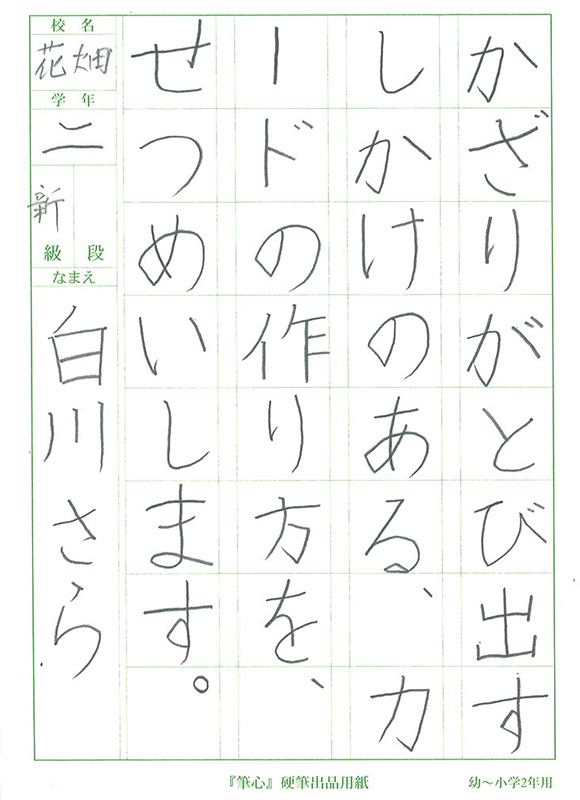 かざりがとび出す
しかけのある、カ
ードの作り方を、
せつめいします。
校名
花畑
学年
二
新
級段
なまえ
白川さら
『筆心』硬筆出品用紙
幼〜小学2年用